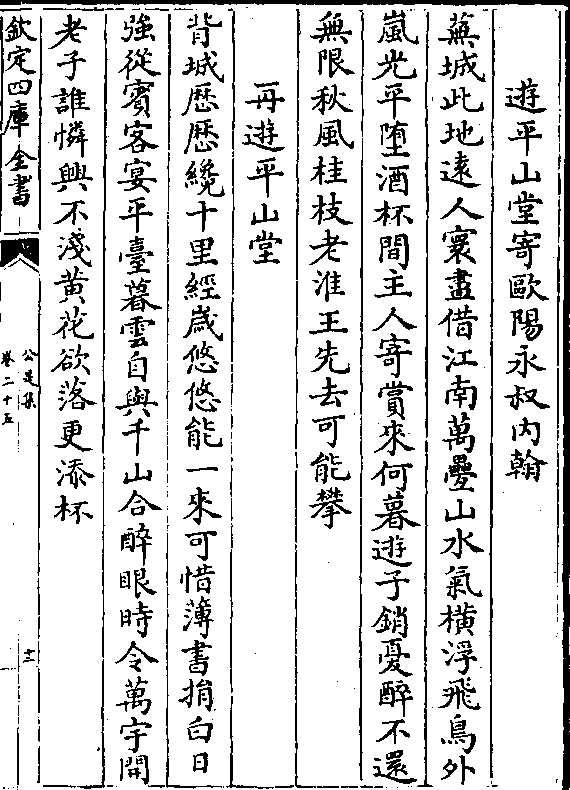 遊平山堂寄歐陽永叔内翰
蕪城此地逺人寰盡借江南萬疊山水氣橫浮飛鳥外
嵐光平堕酒杯間主人寄賞來何暮逰子銷憂醉不還
無限秋風桂枝老淮王先去可能攀
再遊平山堂
背城歴歴纔十里經歲悠悠能一來可惜薄書捐白日
強從賓客宴平臺暮雲自與千山合醉眼時令萬宇開
老子誰憐興不淺黄花欲落更添杯
欽定四庫全書
公是集
卷二十五
十三